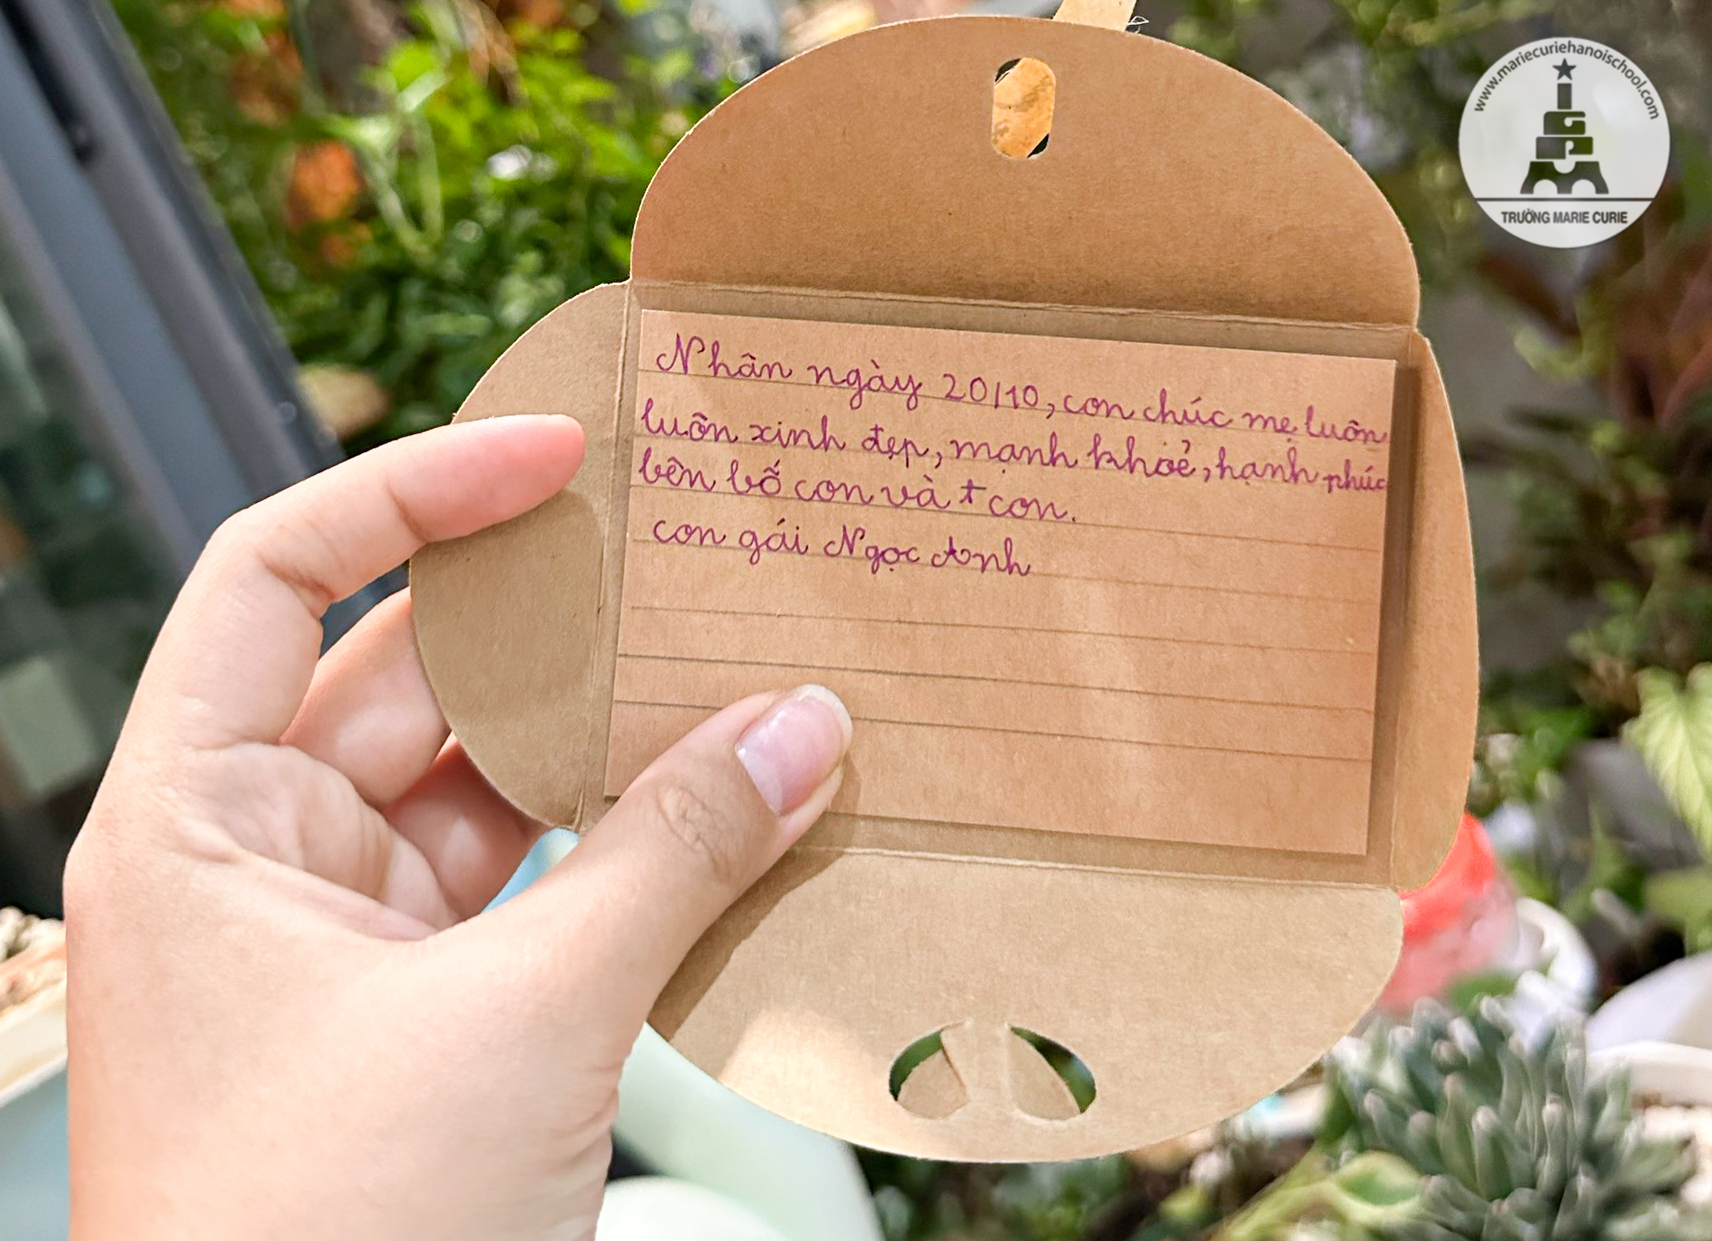 www.mariecuriehanoischool.com
TRƯỜNG MARIE CURIE
Nhân ngày 20/10, con chúc mẹ luôn
luôn xinh đẹp, mạnh khoẻ, hạnh phúc
bên bố con và + con.
con gái Ngọc Anh